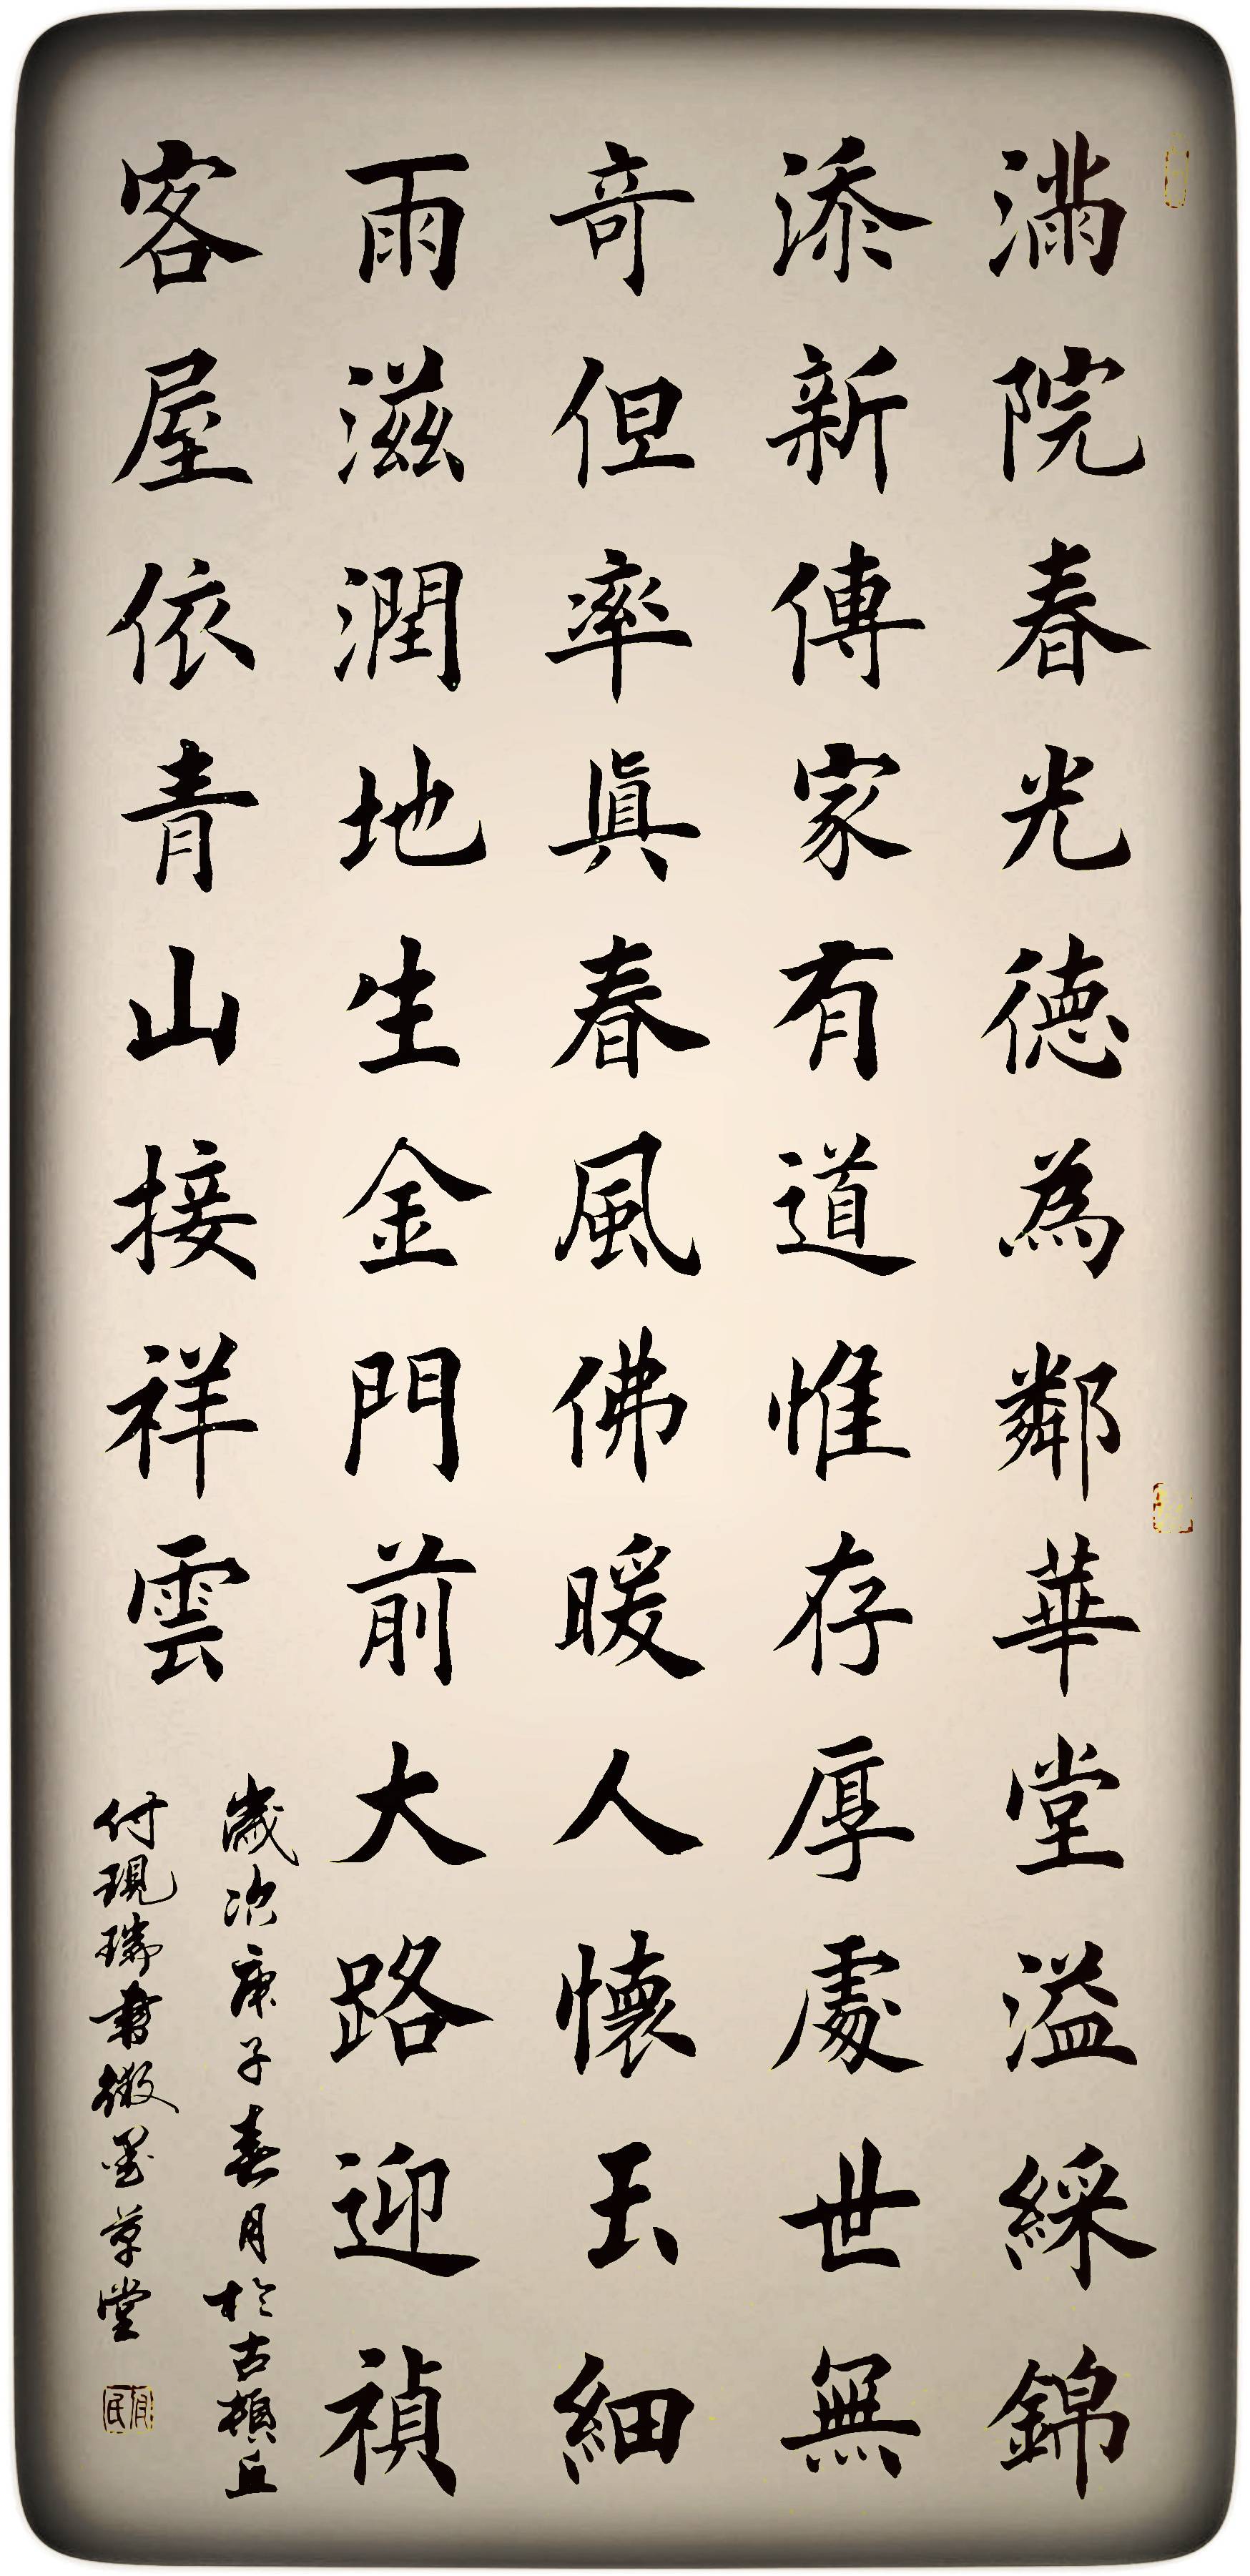 滿院春光德為鄰華堂溢綵錦
添新傳家有道惟存厚處世無
奇但率真春風佛暖人懷玉細
雨滋潤地生金門前大路迎禎
客屋依青山接祥雲
歲次庚子春月於古頓丘
付現瑞書微墨草堂